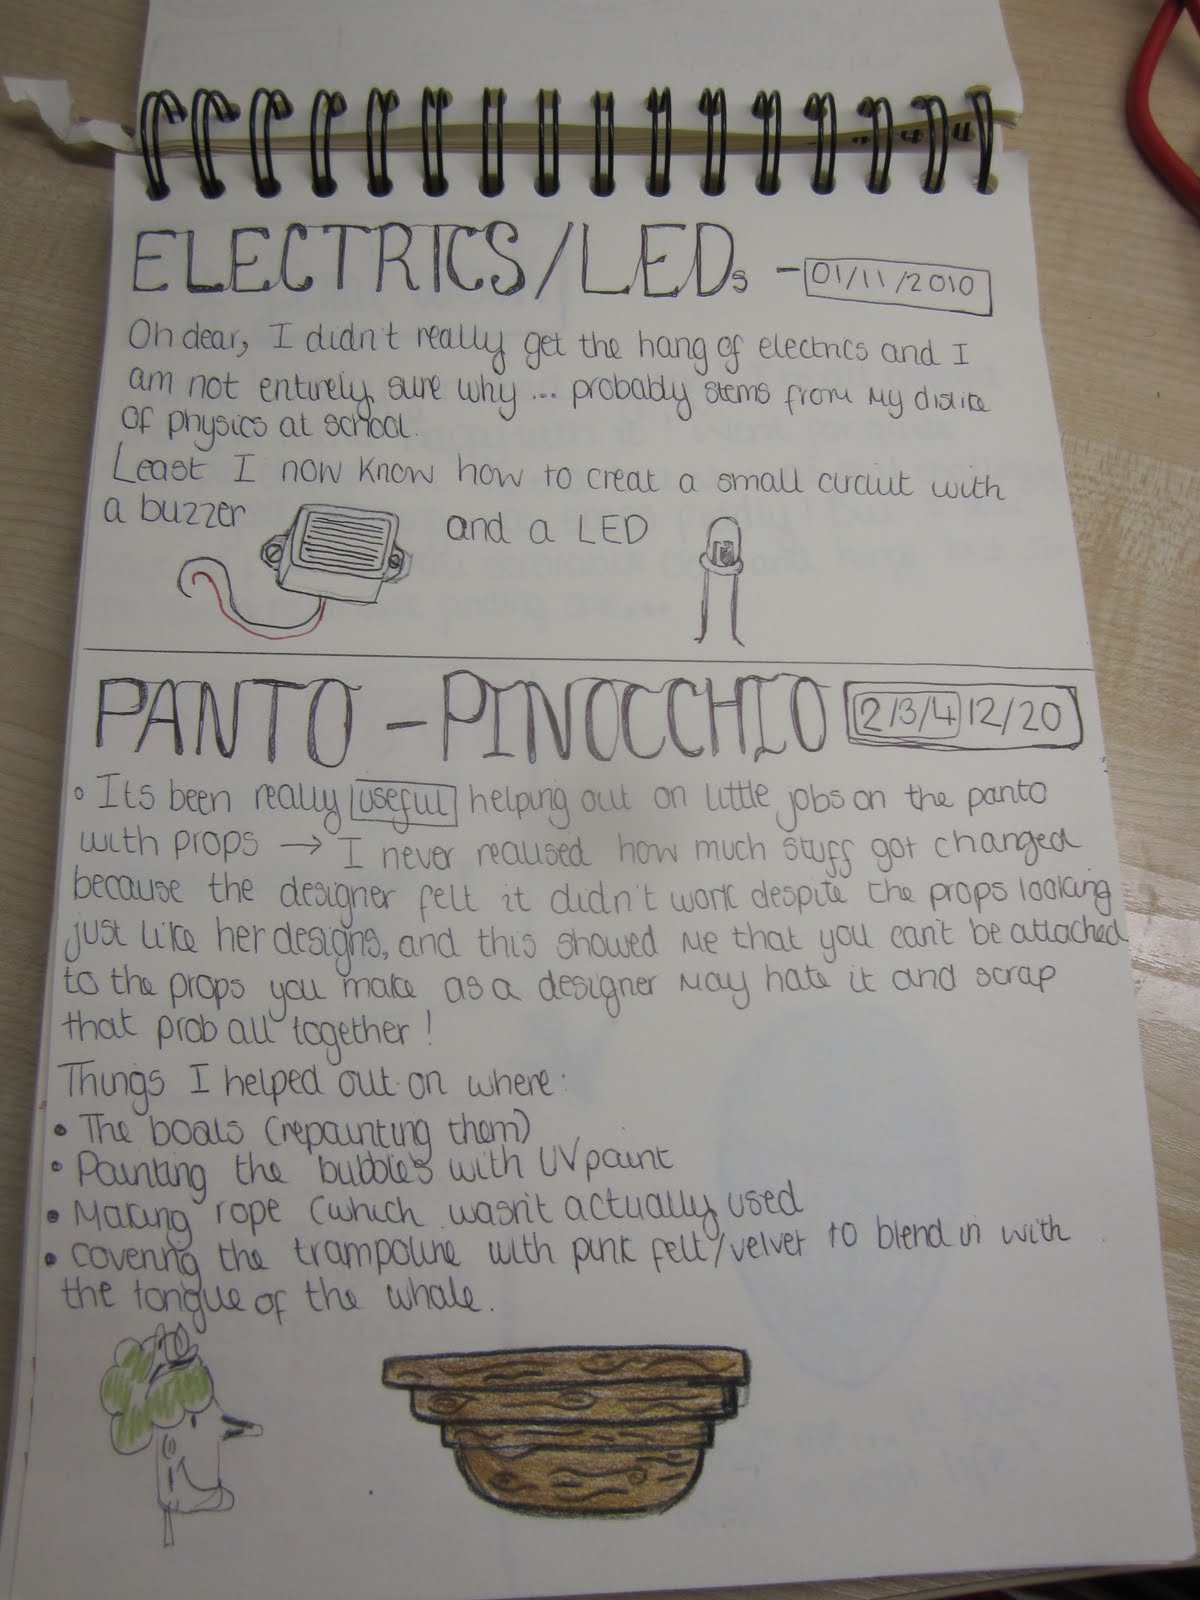 ELECTRICS/LEDs - 01/11/2010
Oh dear, I didn't really get the hang of electrics and I
am not entirely sure why... probably stems from my dislike
of physics at school.
Least I now know how to creat a small circuit with
a buzzer and a LED
PANTO - PINOCCHIO 2/3/4 12/20
• Its been really useful helping out on little jobs on the panto
with props → I never realised how much stuff got changed
because the designer felt it didn't work despite the props looking
just like her designs, and this showed me that you can't be attached
to the props you make as a designer may hate it and scrap
that prob all together!
Things I helped out on where:
• The boats (repainting them)
• Painting the bubbles with UV paint
• Making rope (which wasn't actually used
• covering the trampoline with pink felt/velvet to blend in with
the tongue of the whale.